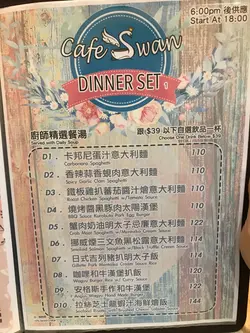 6:00pm 後供應
Start At 18:00
Cafe Swan
DINNER SET
廚師精選餐湯
Served with Daily Soup
跟 $39 以下自選飲品一杯
Choose One Drink Below $39
D1. 卡邦尼蛋汁意大利麵 110
Carbonara Spaghetti
D2. 香辣蒜香蜆肉意大利麵 110
Spicy Garlic Clam Spaghetti
D3. 鐵板雞扒蕃茄醬汁燴意大利麵 119
D4. 燒烤醬黑豚肉太陽漢堡 110
BBQ Sauce Kurobuta Pork Egg Burger
D5. 蟹肉奶油明太子忌廉意大利麵 122
D6. 挪威煙三文魚黑松露意大利麵 114
D7. 日式吉列豬扒明太子飯 110
D8. 咖喱和牛漢堡扒飯 112
Wagyu Burger Rice and Curry Sauce
D9. 安格斯手作和牛漢堡 122
D10. 拉絲芝士龍蝦汁海鮮燴飯 144